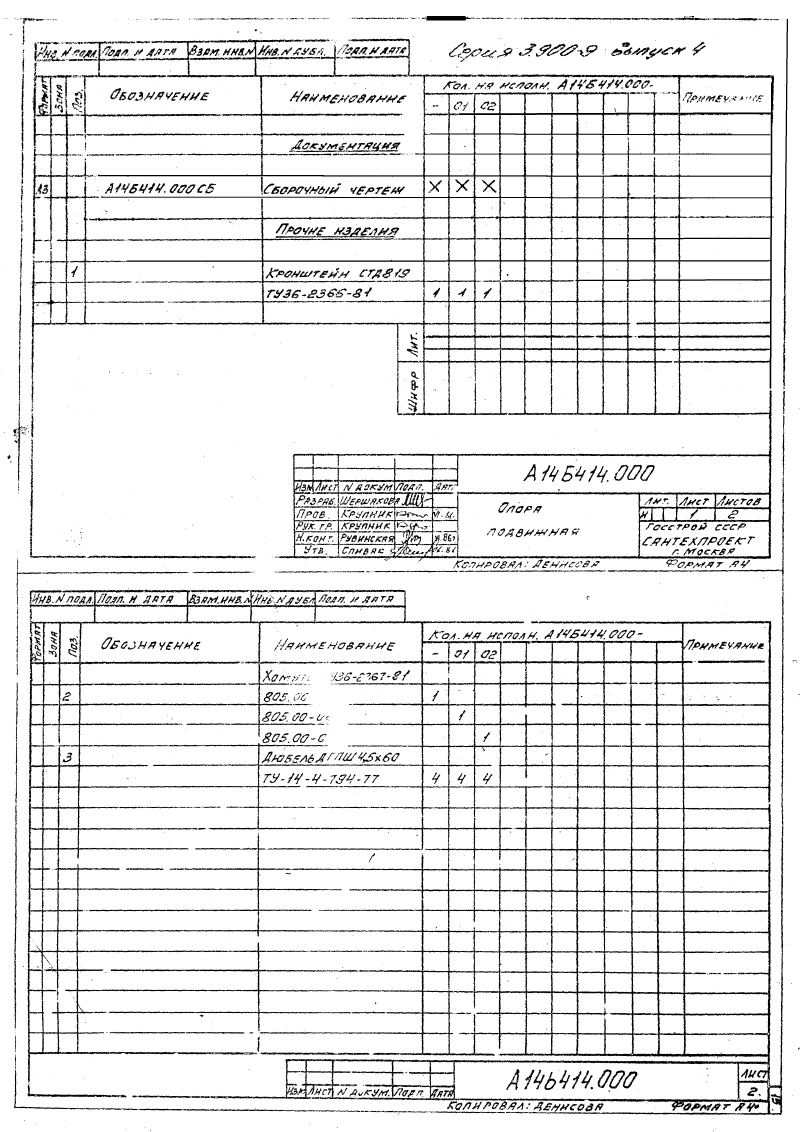 Серия 3.900-9 выпуск 4
Инв. N подл. Подп. и дата Взам. инв. N Инв. N дубл. Подп. и дата
Формат Зона Поз. Обозначение Наименование Кол. на исполн. А14Б414.000- Примечание
- 01 02
Документация
А3 А14Б414.000 СБ Сборочный чертеж X X X
Прочие изделия
1 Кронштейн СТД819
ТУ36-2366-81 1 1 1
Лит.
Шифр
А14Б414.000
Изм Лист N докум Подп. Дат.
Разраб. Шершакова
Пров. Крупник
Рук. гр. Крупник
Н.конт. Рувинская
Утв. Спивак
Опора
подвижная
Лит. Лист Листов
И 1 2
Госстрой СССР
Сантехпроект
г. Москва
Копировал: Денисова Формат А4
Инв. N подл. Подп. и дата Взам. инв. N Инв. N дубл. Подп. и дата
Формат Зона Поз. Обозначение Наименование Кол. на исполн. А14Б414.000- Примечание
- 01 02
У36-2367-81
2 805.00 1
805.00- 1
805.00- 1
3 Дюбель ДГПШ 4,5х60
ТУ-14-4-794-77 4 4 4
А14Б414.000
Лист
2.
Изм Лист N докум. Подп Дата
Копировал: Денисова Формат А4